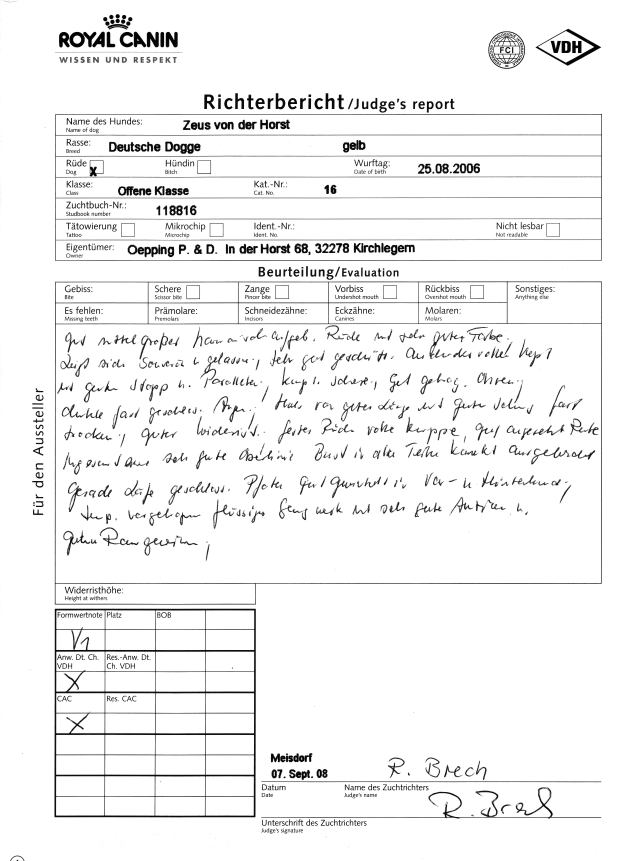 ROYAL CANIN
WISSEN UND RESPEKT
FCI
VDH
Richterbericht/Judge's report
Name des Hundes: Zeus von der Horst
Name of dog
Rasse: Deutsche Dogge gelb
Breed
Rüde X Hündin Wurftag: 25.08.2006
Dog Bitch Date of birth
Klasse: Offene Klasse Kat.-Nr.: 16
Class Cat. No.
Zuchtbuch-Nr.: 118816
Studbook number
Tätowierung Mikrochip Ident.-Nr.: Nicht lesbar
Tattoo Microchip Ident. No. Not readable
Eigentümer: Oepping P. & D. In der Horst 68, 32278 Kirchlegern
Owner
Beurteilung/Evaluation
Gebiss: Schere Zange Vorbiss Rückbiss Sonstiges:
Bite Scissor bite Pincer bite Undershot mouth Overshot mouth Anything else
Es fehlen: Prämolare: Schneidezähne: Eckzähne: Molaren:
Missing teeth Premolars Incisors Canines Molars
gut mittel großer harmonisch aufgeb. Rüde mit sehr guter Farbe.
souverän u. gelassen, sehr gut
mit gutem Stopp u. Schere, Gut getrag. Ohren,
dunkle fast geschloss. Augen, Hals von guter Länge und fast
trocken, guter Widerrist. fester Rücken volle Kruppe, gut angesetzt Rute
Insgesamt sehr gute Oberlinie Brust in allen Teilen korrekt ausgebildet
Gerade Läufe geschloss. Pfoten Gut gewinkelt in Vor- u Hinterhand,
flüssiges Gangwerk mit sehr gute u.
guten Raumgewinn,
Für den Aussteller
Widerristhöhe:
Height at withers
Formwertnote Platz BOB
V1
Anw. Dt. Ch. VDH Res.-Anw. Dt. Ch. VDH
X
CAC Res. CAC
X
Meisdorf
07. Sept. 08 R. Brech
Datum Name des Zuchtrichters
Date Judge's name
R. Brech
Unterschrift des Zuchtrichters
Judge's signature